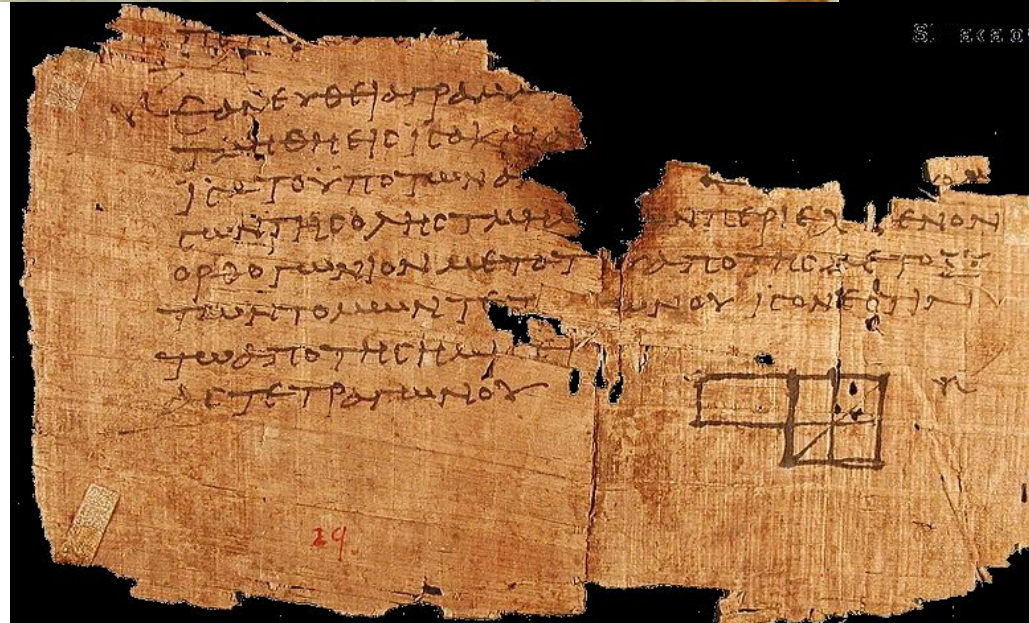 ΕΑΝΕΥΘΕΙΑΓΡΑΜΜ
ΤΜΗΘΗΕΙCΙCΑΚΑΙΑ
ΙCΑΤΟΥΠΟΤΩΝΑ
CΩΝΤΗCΟΛΗCΤΜΗΜ ΝΠΕΡΙΕΧ ΕΝΟΝ
ΟΡΘΟΓΩΝΙΟΝΜΕΤΟΤ ΑΠΟΤΗCΜΕΤΟΞΥ
ΤΩΝΤΟΜΩΝΤΕΤ ΩΝΟΥ ΙCΟΝΕCΤΙΝ
ΤΩΑΠΟΤΗCΗΜΙ
ΑCΤΕΤΡΑΓΩΝΟΥ
29